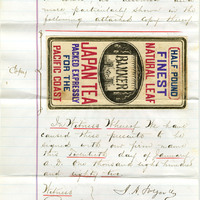 more particularly shown in the
following attached copy thereof
Copy
HALF POUND
FINEST
NATURAL LEAF
JAPAN TEA
PACKED EXPRESSLY
FOR THE
PACIFIC COAST
In Witness Whereof We have
caused these presents to be
signed with our firm name
this twentieth day of January
A.D. one thousand eight hundred
and eighty
Witness